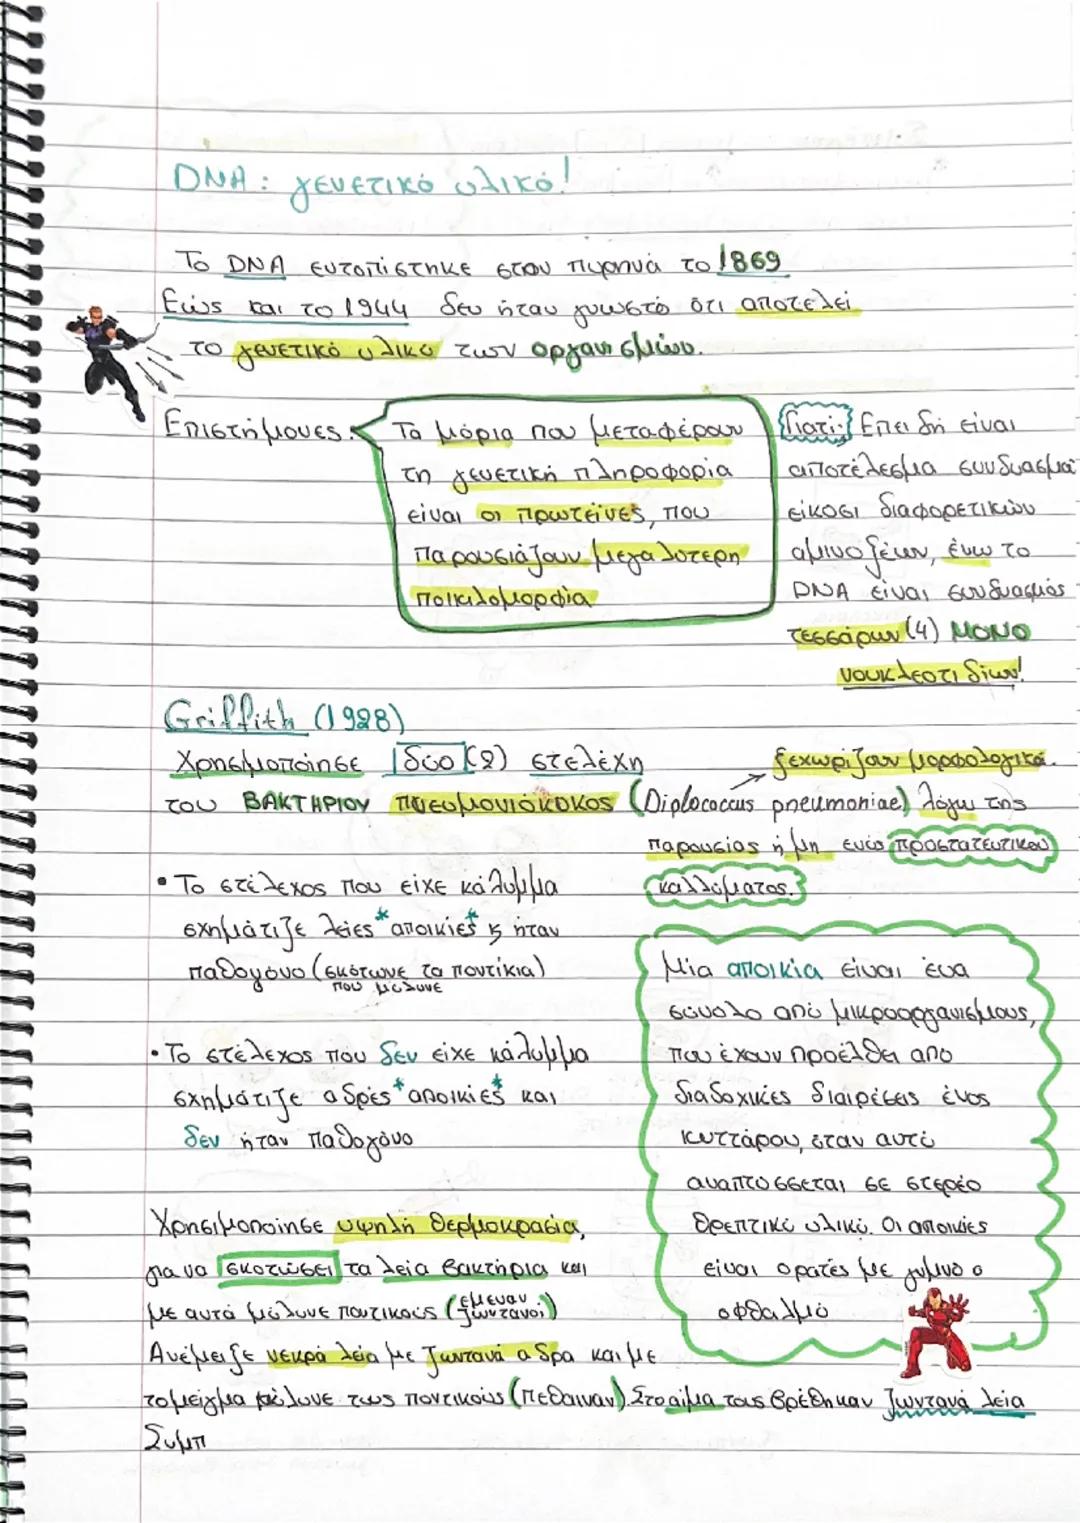 DNA: γενετικό υλικό!
Το DNA εντοπίστηκε στον πυρηνά το 1869
Εώς και το 1944 δεν ήταν γνωστό ότι αποτελεί
το γενετικό υλικό των οργανισμών.
Επιστήμονες:
Τα μόρια που μεταφέρουν
τη γενετική πληροφορία
είναι οι πρωτεΐνες, που
παρουσιάζουν μεγαλύτερη
ποικιλομορφία
Γιατί; Επειδή είναι
αποτέλεσμα συνδυασμα
είκοσι διαφορετικών
αμινοξέων, ένω το
DNA είναι συνδυασμός
τεσσάρων (4) ΜΟΝΟ
νουκλεοτιδίων!
Griffith (1928)
Χρησιμοποίησε δύο (2) στελέχη
ξεχωρίζουν μορφολογικά
του ΒΑΚΤΗΡΙΟΥ πνευμονιόκοκος (Diplococcus pneumoniae) λόγω της
παρουσίας ή μη ενός προστατευτικού
καλλύματος.
• Το στέλεχος που είχε κάλυμμα
σχημάτιζε λείες* αποικίες* κ ήταν
παθογόνο (σκότωνε τα ποντίκια)
που μόλυνε
• Το στέλεχος που δεν είχε κάλυμμα
σχημάτιζε αδρές* αποικίες* και
δεν ήταν παθογόνο
Μία αποικία είναι ένα
σύνολο από μικροοργανισμους,
που έχουν προέλθει από
διαδοχικές διαιρέσεις ένος
κυττάρου, όταν αυτό
αναπτύσσεται σε στερέο
θρεπτικό υλικό. Οι αποικίες
είναι ορατές με γυμνό ο
οφθαλμό
Χρησιμοποίησε υψηλή θερμοκρασία,
για να σκοτώσει τα λεία βακτήρια και
με αυτά μόλυνε ποντικούς (έμειναν ζωντανοί)
Ανέμειξε νεκρά λεία με ζωντανά αδρα και με
το μείγμα μόλυνε τους ποντικούς (πεθαιναν). Στο αίμα τους βρέθηκαν ζωντανά λεία
Συμπ